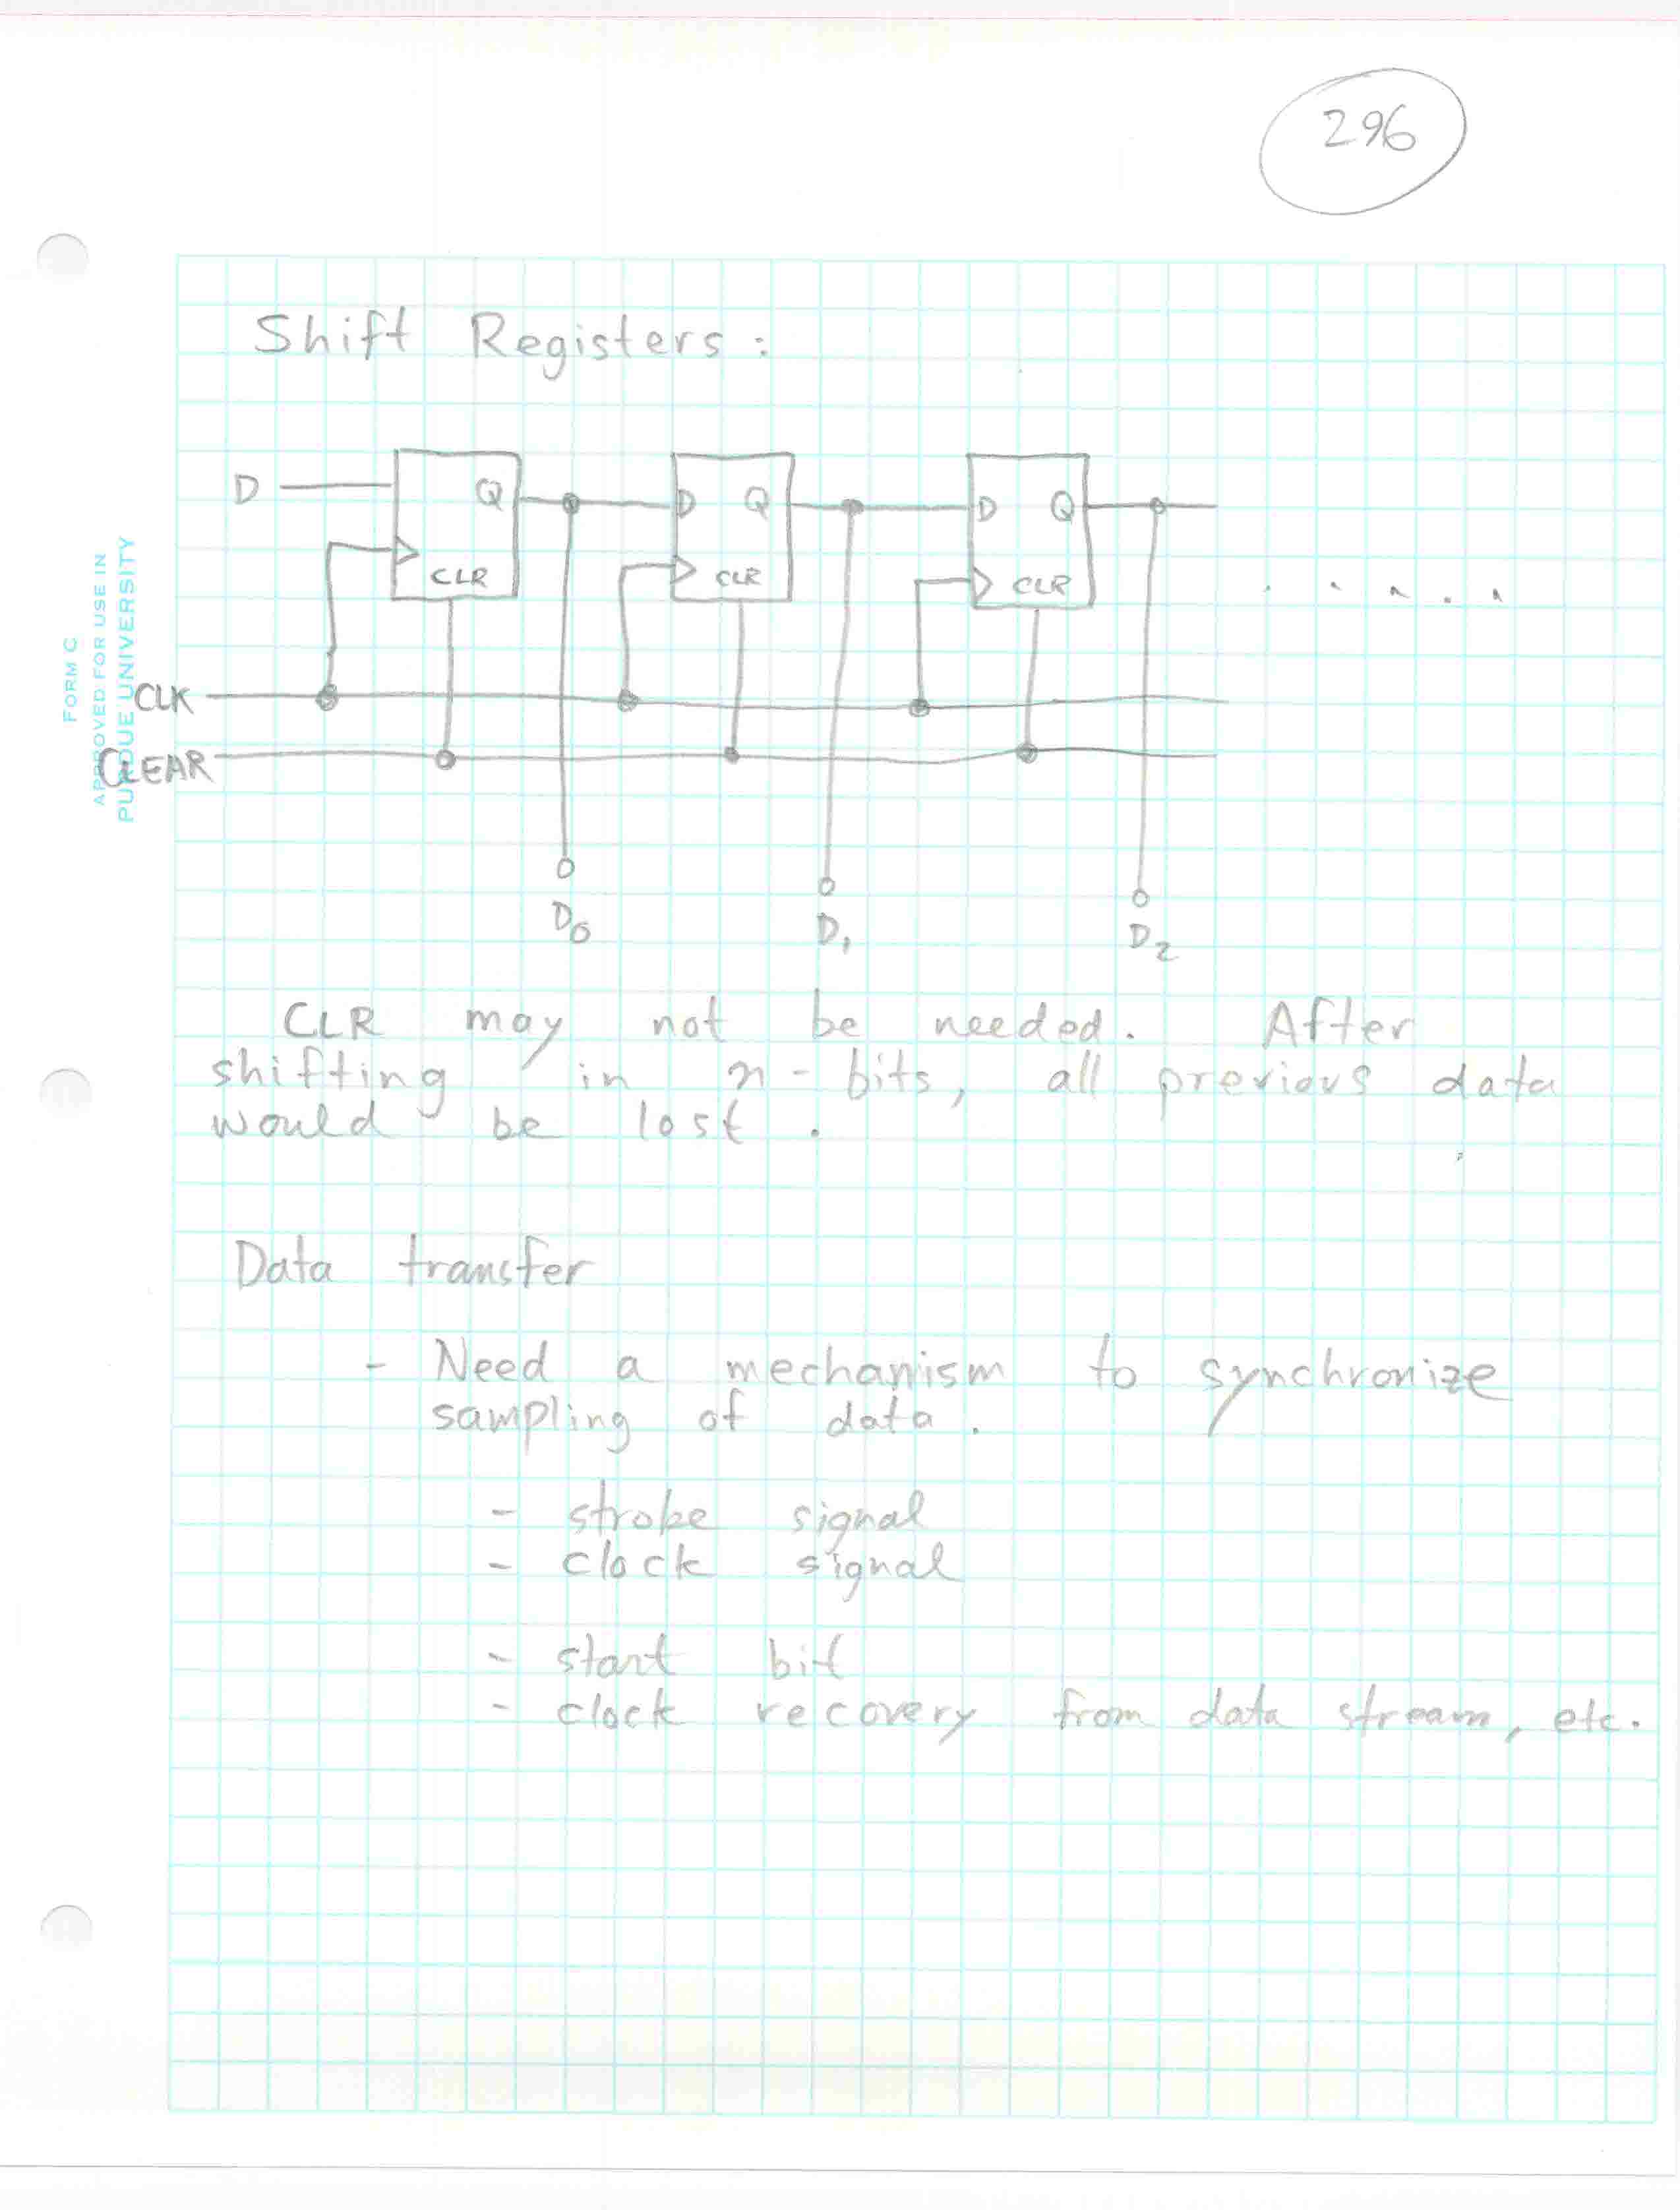 296
FORM C
APPROVED FOR USE IN
PURDUE UNIVERSITY
Shift Registers:
D Q D Q D Q
CLR CLR CLR
. . . . .
CLK
CLEAR
D0 D1 D2
CLR may not be needed. After
shifting in n-bits, all previous data
would be lost.
Data transfer
- Need a mechanism to synchronize
sampling of data.
- strobe signal
- clock signal
- start bit
- clock recovery from data stream, etc.